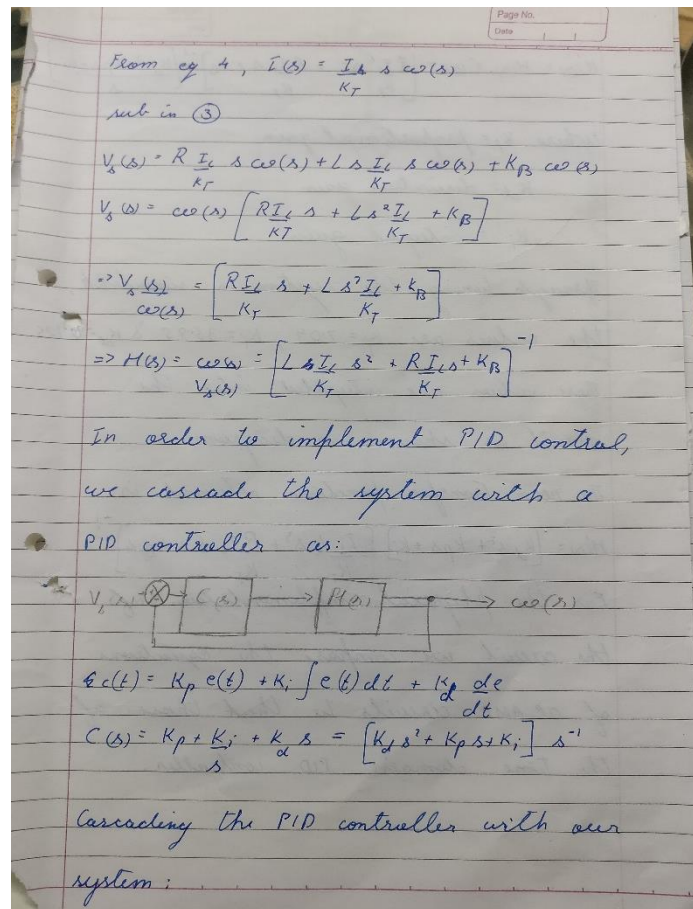 Page No.
Date
From eq 4, I(s) = I_L/K_T s ω(s)
sub in ③
V_s(s) = R I_L/K_T s ω(s) + L s I_L/K_T s ω(s) + K_B ω(s)
V_s(s) = ω(s) [R I_L/KT s + L s² I_L/K_T + K_B]
=> V_s(s)/ω(s) = [R I_L/K_T s + L s² I_L/K_T + k_B]
=> H(s) = ω(s)/V_s(s) = [L s I_L/K_T s² + R I_L/K_T s + K_B]⁻¹
In order to implement PID control,
we cascade the system with a
PID controller as:
V_s C(s) H(s) ω(s)
c(t) = K_p e(t) + K_i ∫ e(t) dt + K_d de/dt
C(s) = K_p + K_i/s + K_d s = [K_d s² + K_p s + K_i] s⁻¹
Cascading the PID controller with our
system: